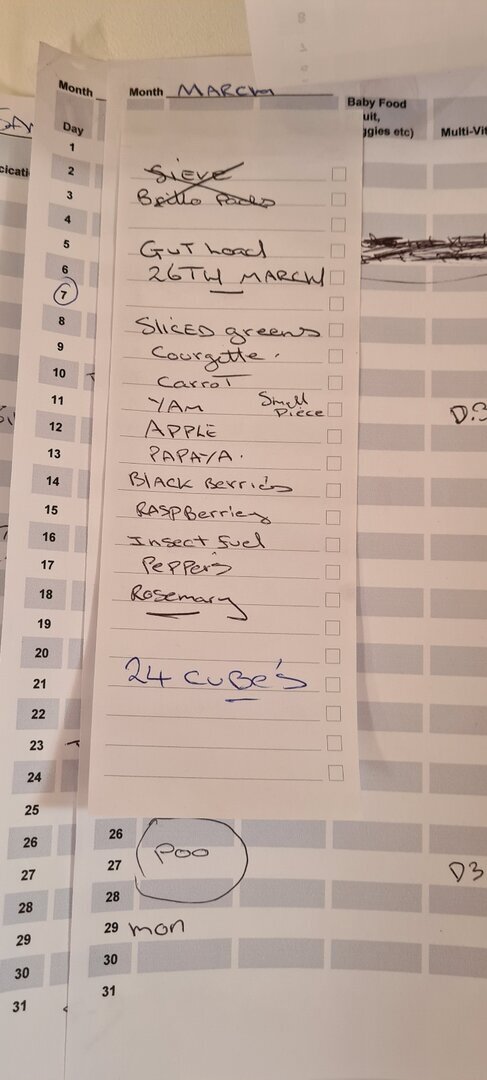 Month
Month MARCH
Baby Food
uit,
ggies etc)
Multi-Vit
Day
1
2
3
4
5
6
7
8
9
10
11
12
13
14
15
16
17
18
19
20
21
22
23
24
25
26
27
28
29
30
31
SIEVE
Brillo Pads
GUT Load
26TH MARCH
SLICED greens
Courgette.
Carrot
YAM Small Piece
APPLE
PAPAYA.
BLACK Berries
RASPBerries
Insect fuel
Peppers
Rosemary
24 CUBE'S
D3
26
27 Poo
D3
28
29 mon
30
31